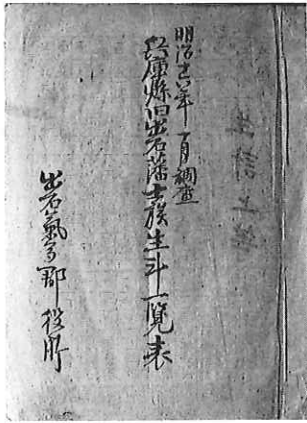 明治十六年一月調査
兵庫縣旧出石藩士族生計一覧表
出石氣多郡役所